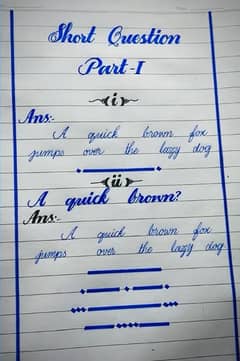 Short Question
Part-I
(i)
Ans:-
A quick brown fox
jumps over the lazy dog
(ii)
A quick brown?
Ans:-
A quick brown fox
jumps over the lazy dog